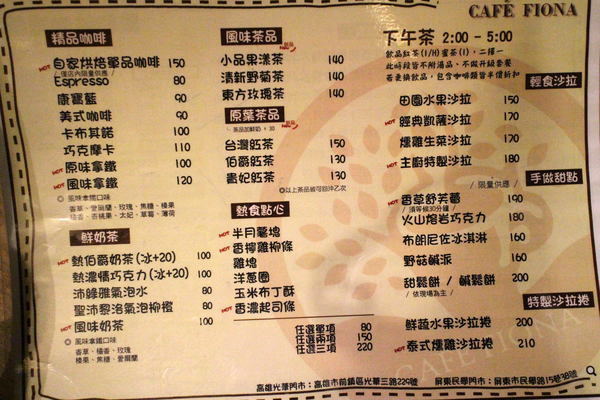 CAFÉ FIONA
精品咖啡
HOT 自家烘焙單品咖啡 150
/ 僅店內限量供應 /
Espresso 80
康寶藍 90
美式咖啡 90
卡布其諾 100
巧克摩卡 110
HOT 原味拿鐵 100
HOT 風味拿鐵 120
風味拿鐵口味
香草、愛爾蘭、玫瑰、焦糖、榛果
榛杏、杏桃果、太妃、草莓、薄荷
鮮奶茶
HOT 熱伯爵奶茶(冰+20) 100
熱濃情巧克力(冰+20) 100
沛綠雅氣泡水 80
聖沛黎洛氣泡柳橙 80
HOT 風味奶茶 100
風味拿鐵口味
香草、榛杏、玫瑰
榛果、焦糖、愛爾蘭
風味茶品
小品果漾茶 140
清新野菊茶 140
東方玫瑰茶 140
原葉茶品
茶品加鮮奶 + 30
台灣紅茶 150
伯爵紅茶 130
貴妃紅茶 130
◎以上茶品皆可回沖乙次
熱食點心
HOT 半月薯塊
HOT 香檸雞柳條
雞塊
洋蔥圈
玉米布丁酥
HOT 香濃起司條
任選單項 80
任選兩項 150
任選三項 220
下午茶 2:00 - 5:00
飲品紅茶(I/H)蜜茶(I)、二擇一
此時段皆不附湯品、不做升級套餐
若更換飲品，包含咖啡類皆半價折扣
輕食沙拉
田園水果沙拉 150
HOT 經典凱薩沙拉 170
燻雞生菜沙拉 170
HOT 主廚特製沙拉 180
手做甜點
/ 限量供應 /
HOT 香草舒芙蕾 190
/ 須等候30分鐘 /
火山熔岩巧克力 180
布朗尼佐冰淇淋 160
野菇鹹派 160
甜鬆餅 / 鹹鬆餅 200
/ 依現場為主 /
特製沙拉捲
鮮蔬水果沙拉捲 200
HOT 泰式燻雞沙拉捲 210
CAFÉ FIONA
高雄光華門市：高雄市前鎮區光華三路229號
屏東民學門市：屏東市民學路15巷38號